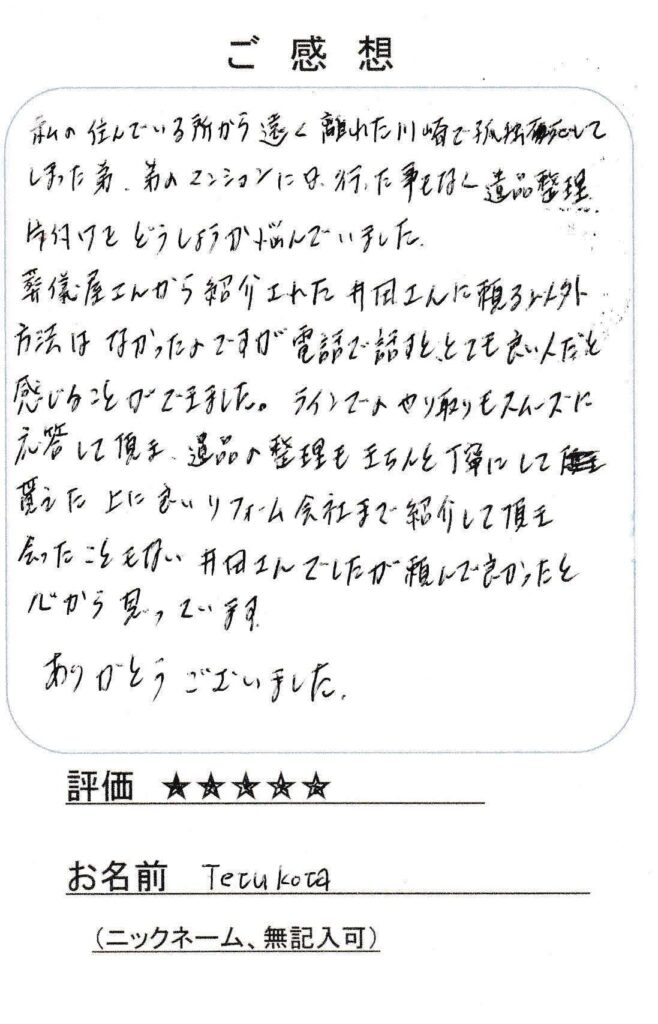 ご感想
私の住んでいる所から遠く離れた川崎で孤独死して
しまった弟、弟のマンションには、行った事もなく遺品整理
片付けをどうしようか悩んでいました。
葬儀屋さんから紹介された井田さんに頼る以外
方法はなかったのですが電話で話すと、とても良い人だと
感じることができました。ラインでのやり取りもスムーズに
応答して頂き、遺品の整理もきちんと丁寧にして
貰えた上に良いリフォーム会社まで紹介して頂き
会ったこともない井田さんでしたが頼んで良かったと
心から思っています。
ありがとうございました。
評価 ★★★★★
お名前 Terukota
（ニックネーム、無記入可）